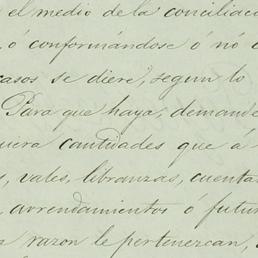 el medio de la conciliac
ó conformándose ó nó c
casos se diere", segun lo
Para que haya, demande
uiera cantidades que á
s, vales, libranzas, cuenta
arrendamientos ó futur
razon le pertenezcan,